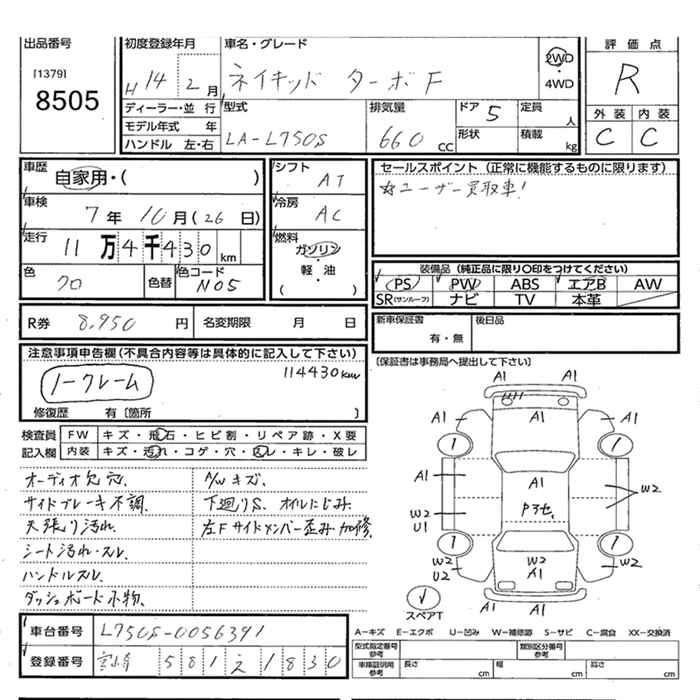 出品番号
[1379]
8505
初度登録年月
H 14 2月
車名・グレード
ネイキッド ターボF
2WD
・
4WD
評価点
R
ディーラー・並行
モデル年式 年
ハンドル 左・右
型式
LA-L750S
排気量
660 cc
ドア 5
形状
定員 人
積載 kg
外装 内装
C C
車歴
自家用・( )
車検
7年 10月(26日)
走行
11万4千430km
色
クロ
色替
色コード
N05
シフト
AT
冷房
AC
燃料
ガソリン
・
軽・油
( )
セールスポイント (正常に機能するものに限ります)
☆ユーザー買取車!
装備品 (純正品に限り〇印をつけてください)
PS PW ABS エアB AW
SR(サンルーフ) ナビ TV 本革
R券 8,950 円 名変期限 月 日
新車保証書
有・無
後日品
[保証書は事務局へ提出して下さい]
注意事項申告欄(不具合内容等は具体的に記入して下さい)
114430km
ノークレーム
修復歴 有 [箇所 ]
検査員
記入欄
FW キズ・飛石・ヒビ割・リペア跡・X要
内装 キズ・汚れ・コゲ・穴・スレ・キレ・破レ
オーディオ欠穴
サイドブレーキ不調、
天張り汚れ
シート汚れ・スレ
ハンドルスレ
ダッシュボード小物、
A/Wキズ、
下廻りS、オイルにじみ、
左Fサイドメンバー歪み加修、
A1
A1 A1 A1
A1 A1 A1
W2 Pスモ W2
U1
W2 W2 W2
U2 A1 U2
A1
スペアT
車台番号 L750S-0056391
登録番号 宮崎 581 え 1830
A-キズ E-エクボ U-凹み W-補修跡 S-サビ C-腐食 XX-交換済
型式指定番号
参考
類別区分番号
参考
車庫証明用
参考
長さ cm 幅 cm 高さ cm